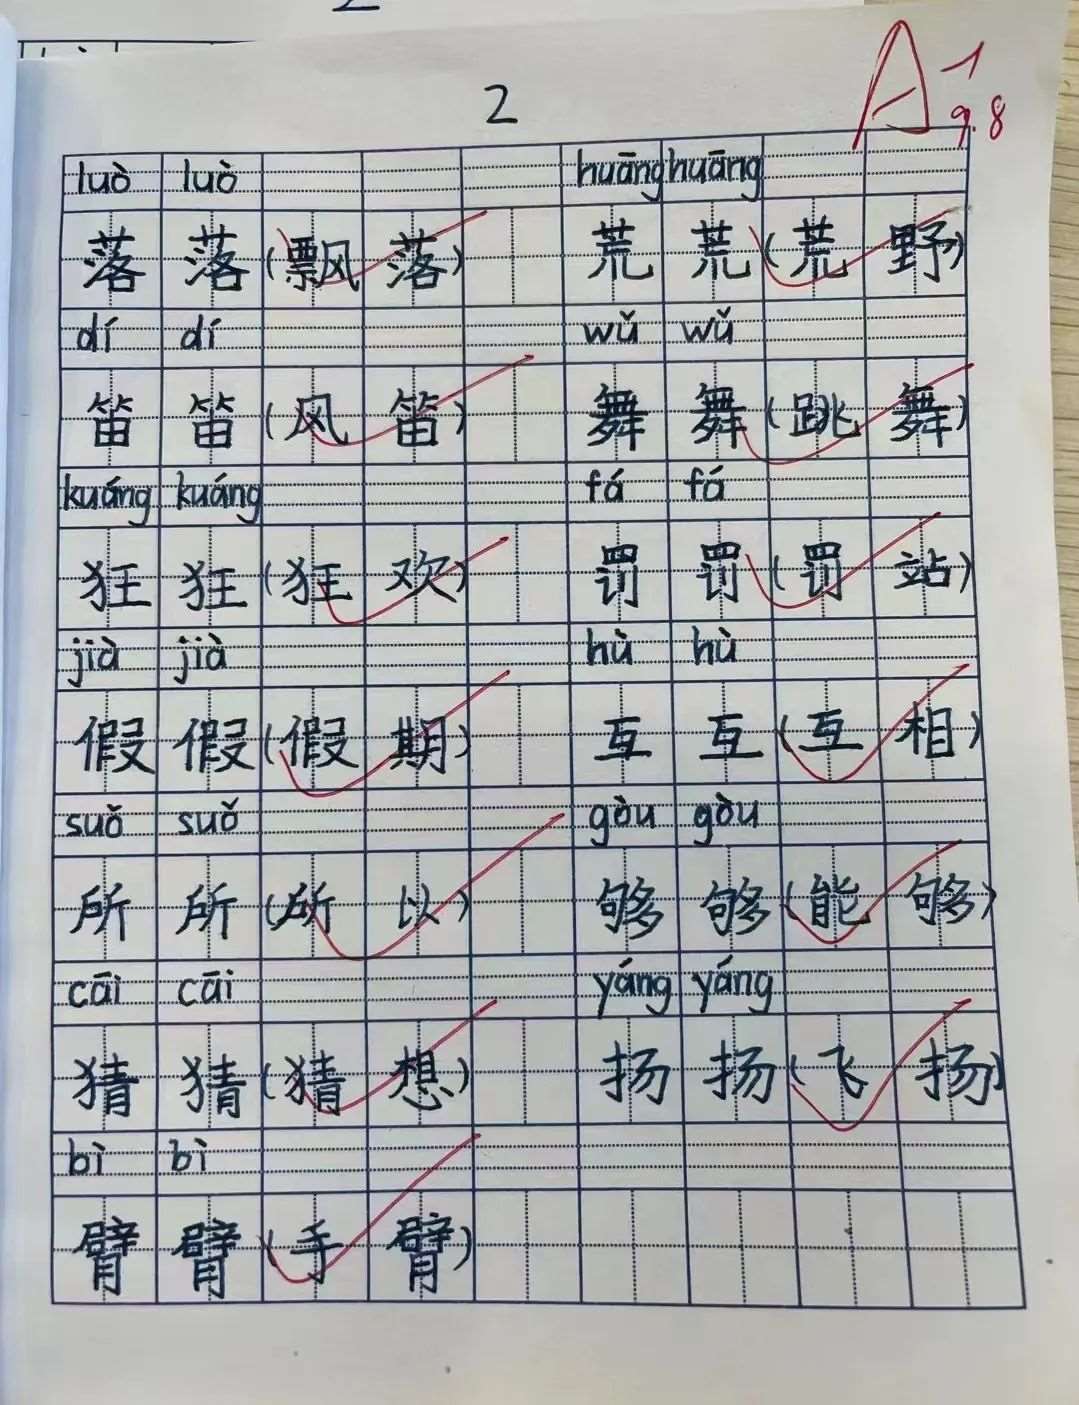 A 1
9.8
2
luò luò huāng huāng
落 落 (飘 落) 荒 荒 (荒 野)
dí dí wǔ wǔ
笛 笛 (风 笛) 舞 舞 (跳 舞)
kuáng kuáng fá fá
狂 狂 (狂 欢) 罚 罚 (罚 站)
jià jià hù hù
假 假 (假 期) 互 互 (互 相)
suǒ suǒ gòu gòu
所 所 (所 以) 够 够 (能 够)
cāi cāi yáng yáng
猜 猜 (猜 想) 扬 扬 (飞 扬)
bì bì
臂 臂 (手 臂)